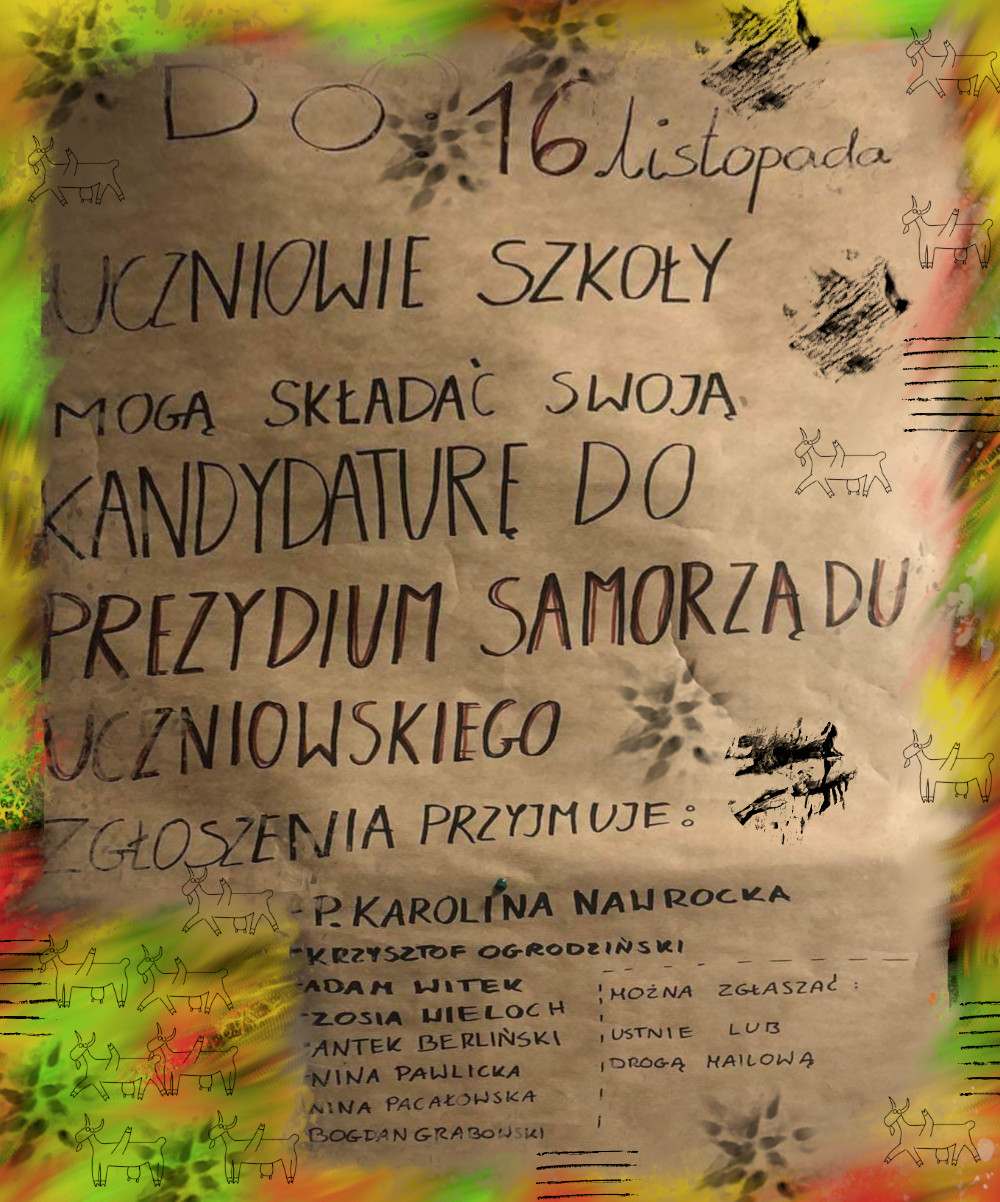 DO 16 listopada
UCZNIOWIE SZKOŁY
MOGĄ SKŁADAĆ SWOJĄ
KANDYDATURĘ DO
PREZYDIUM SAMORZĄDU
UCZNIOWSKIEGO
ZGŁOSZENIA PRZYJMUJE:
- P. KAROLINA NAWROCKA
- KRZYSZTOF OGRODZIŃSKI
- ADAM WITEK
- ZOSIA WIELOCH
- ANTEK BERLIŃSKI
- NINA PAWLICKA
- NINA PACAŁOWSKA
BOGDAN GRABOWSKI
MOŻNA ZGŁASZAĆ:
USTNIE LUB
DROGĄ MAILOWĄ